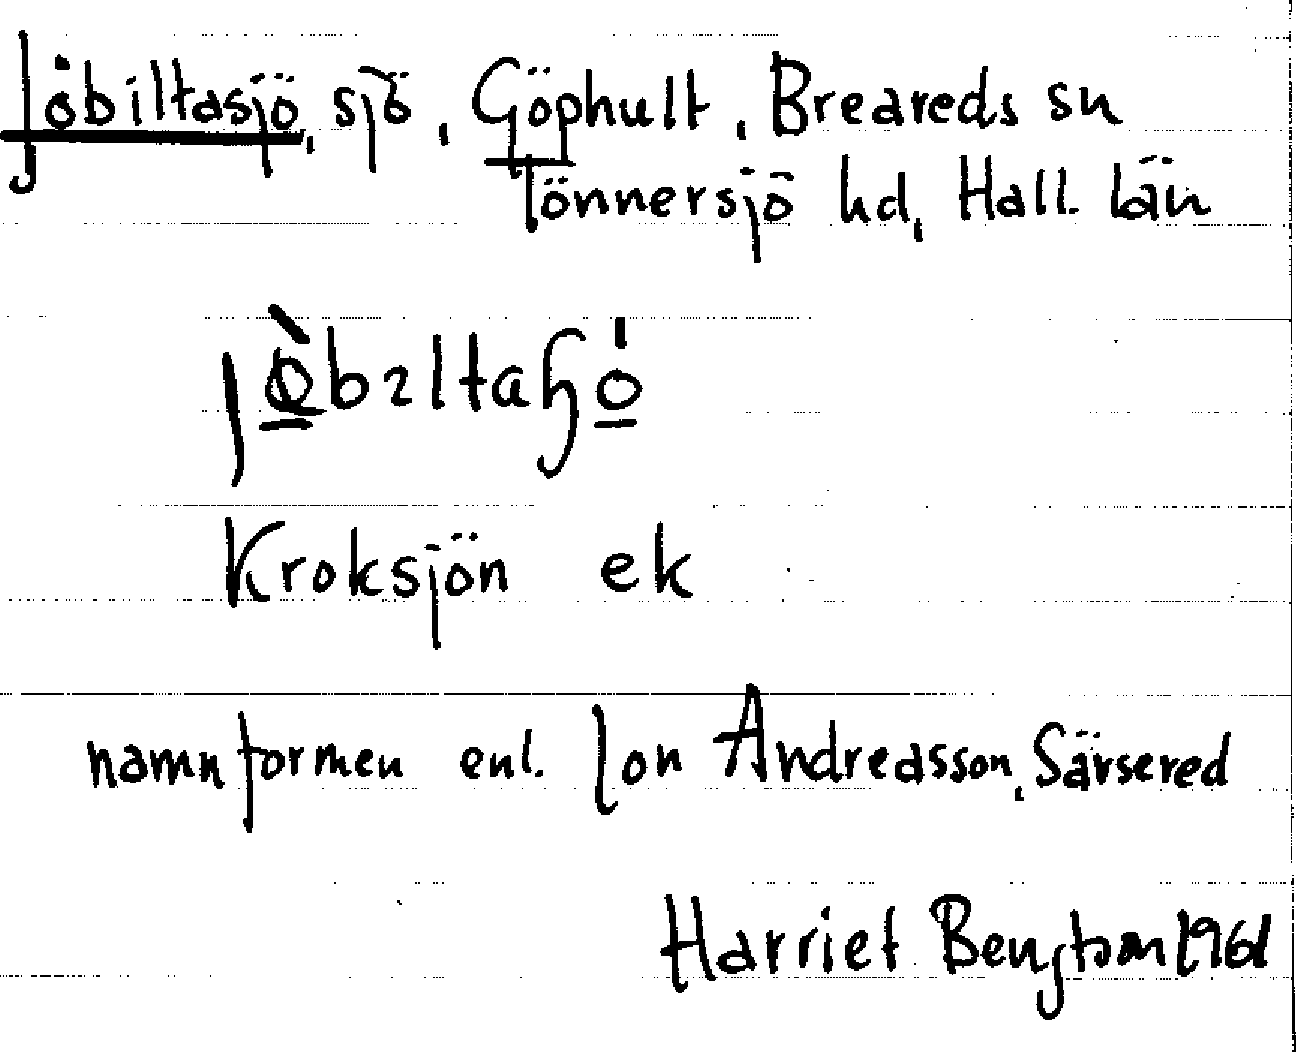 Jöbiltasjö, sjö, Göphult, Breareds sn
Tönnersjö hd, Hall. län
Kroksjön ek
namnformen enl. Jon Andreasson, Särsered
Harriet Bengtson 1961